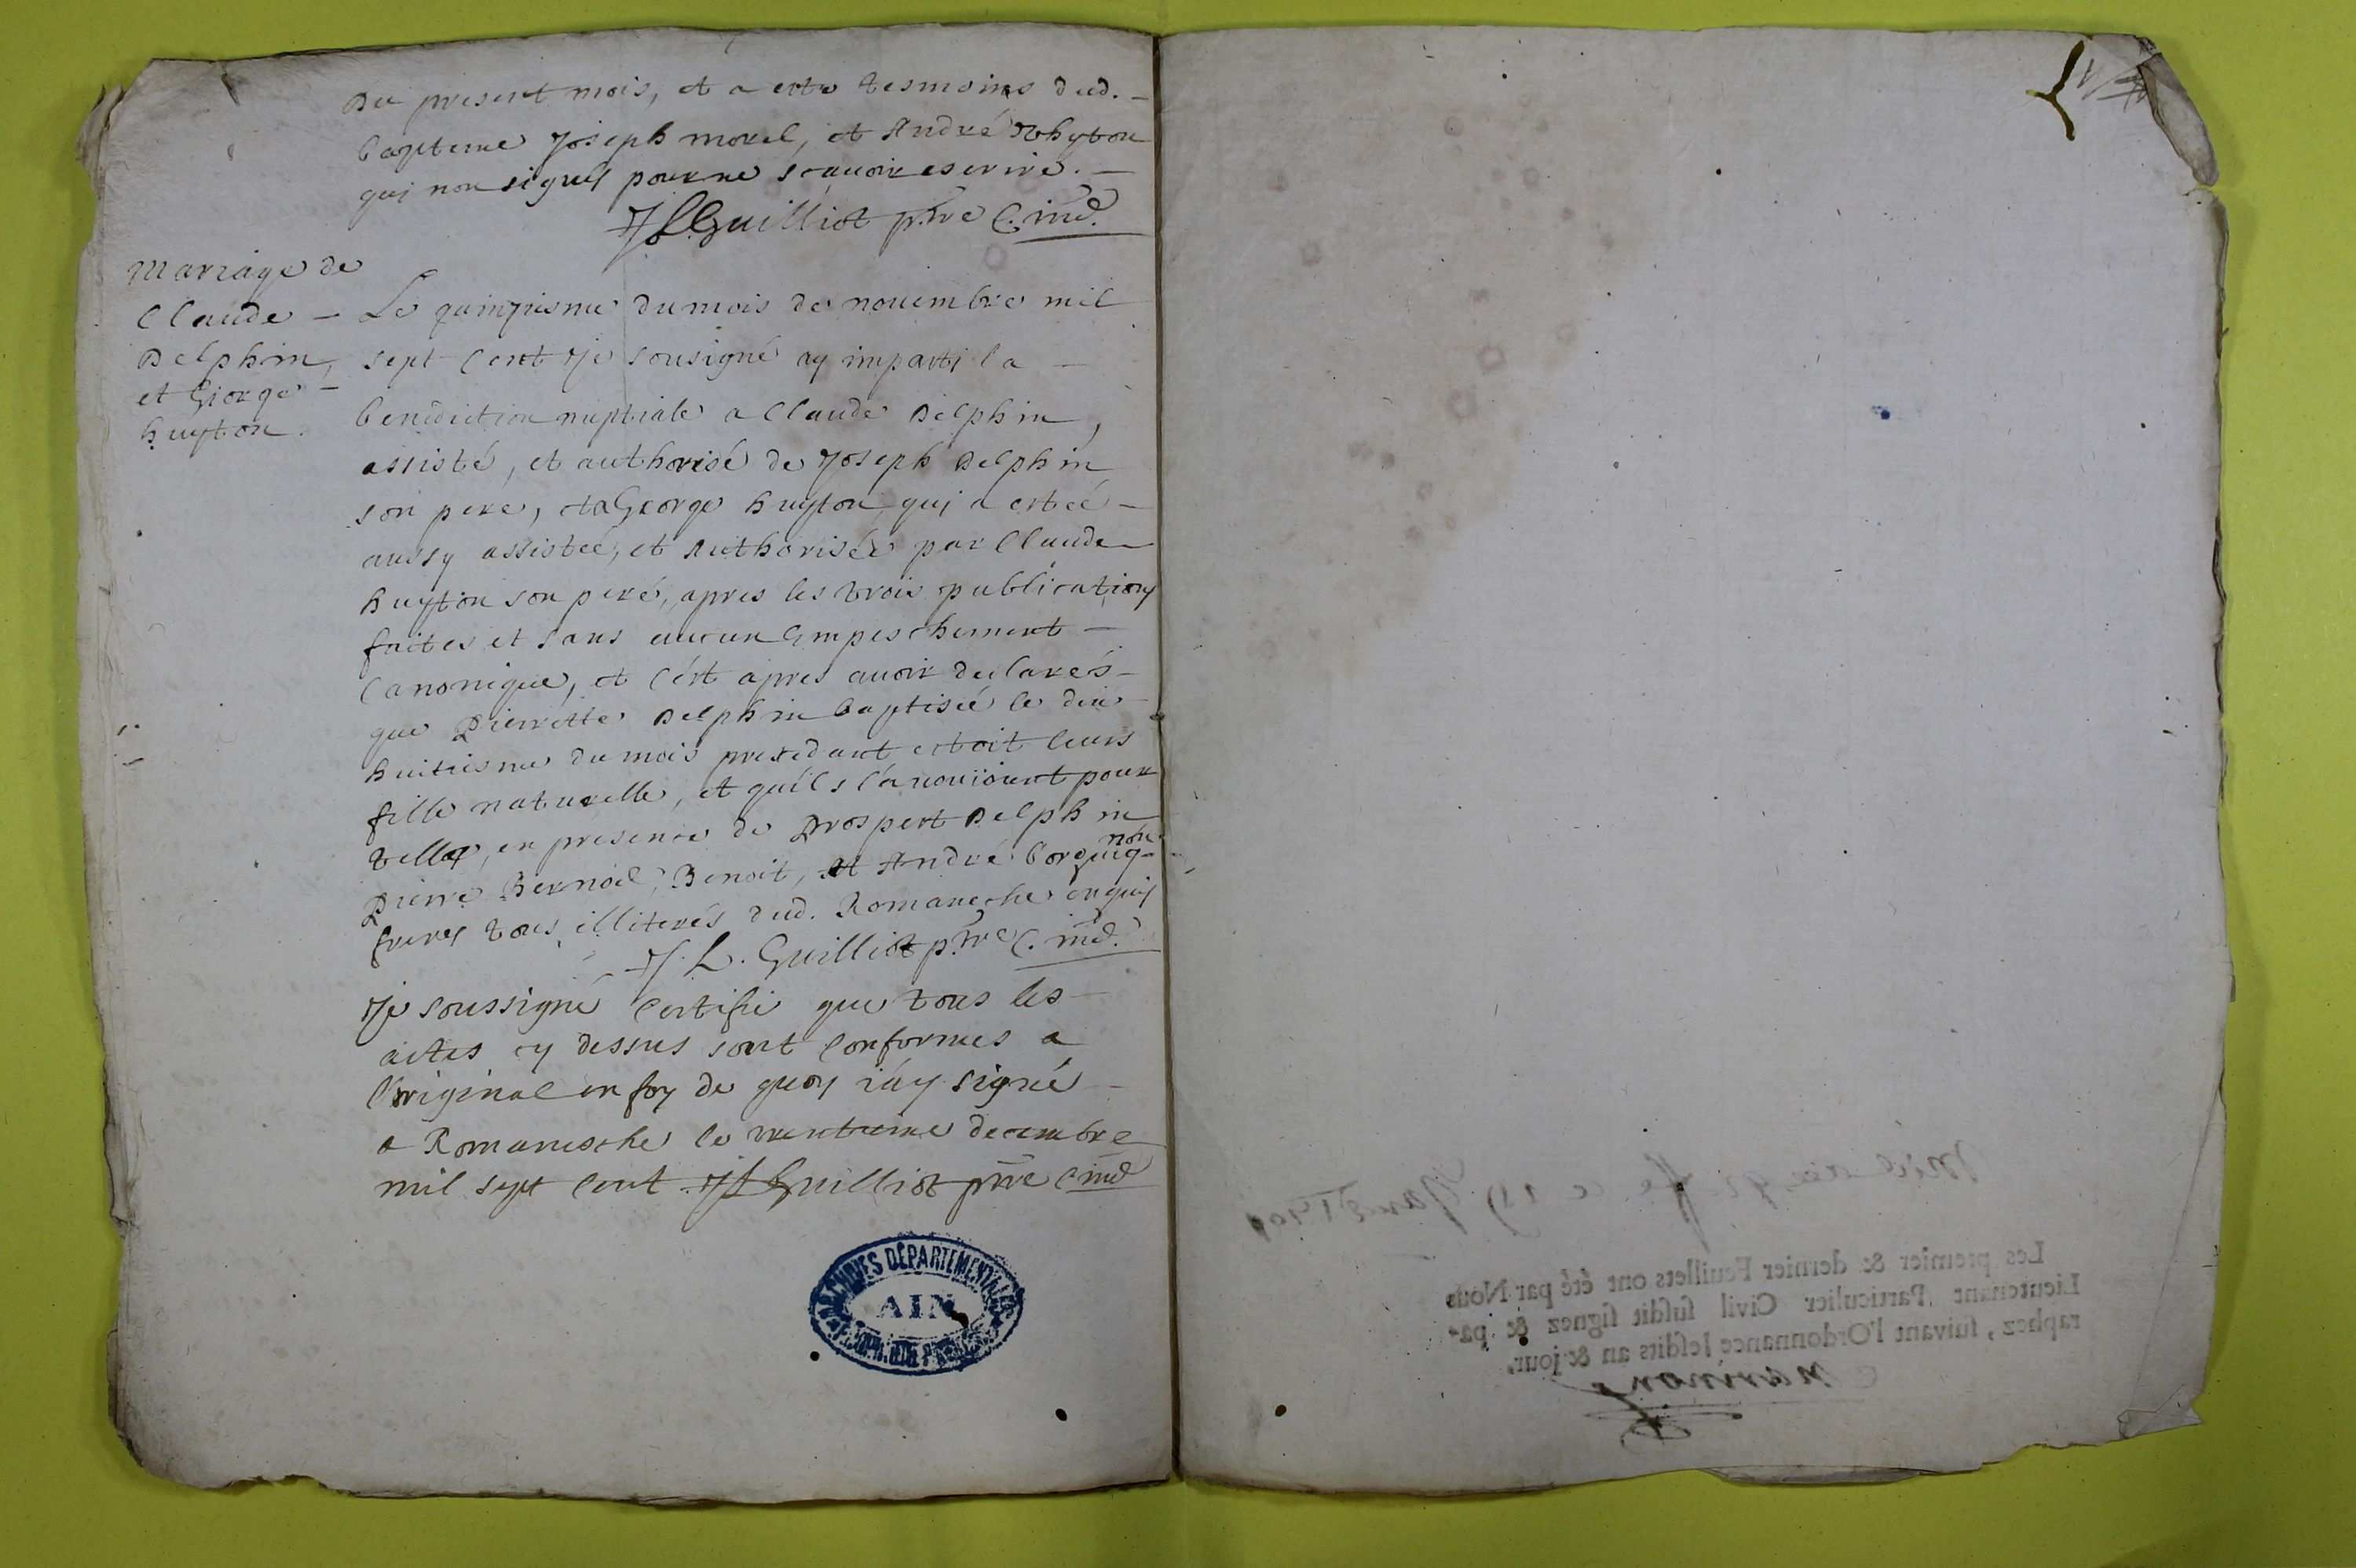 Du present mois, et a este tesmoins dud. –
bapteme Joseph morel, et André
qui non signés pour ne scauoir escrire. –
JLGuilliot p.tre C. ind.
Mariage de
Claude –
Delphin,
et Giorge –
huyton.
Le quinziesme du mois de nouembre mil
sept cent Je sousigné ay imparti la –
benediction nuptiale a Claude Delphin,
assisté, et authorisé de Joseph Delphin
son pere, et a George huyton, qui a estéé –
aussy assistéé, et Authorisée par Claude
huyton son peré, apres les trois publications
faites et sans aucun Empeschement –
Canonique, et cést apres auoir declarés –
que Pierrette Delphin baptiséé le dix
huitiesme du mois presedant estoit leurs
fille naturelle, et quíl s l'auouoient pour
telle, en presence de Prospert Delphin
Pierre Bernoil, Benoit, et André borguig-
non
freres tous illiterés dud. Romaneche enquis
J. L. Guilliot p.tre C. ind.
Je soussigné Certifie que tous les –
actes cy dessus sont Conformes a
l'original en foy de quoy iáy signé –
a Romanesche le trentieme decembre
mil sept Cent JLGuilliot ptre C ind
ARCHIVES DÉPARTEMENTALES
AIN
Les premier & dernier Feuillets ont été par Nous
Lieutenant Particulier Civil suſdit ſignez & pa-
raphez, ſuivant l'Ordonnance leſdits an & jour.